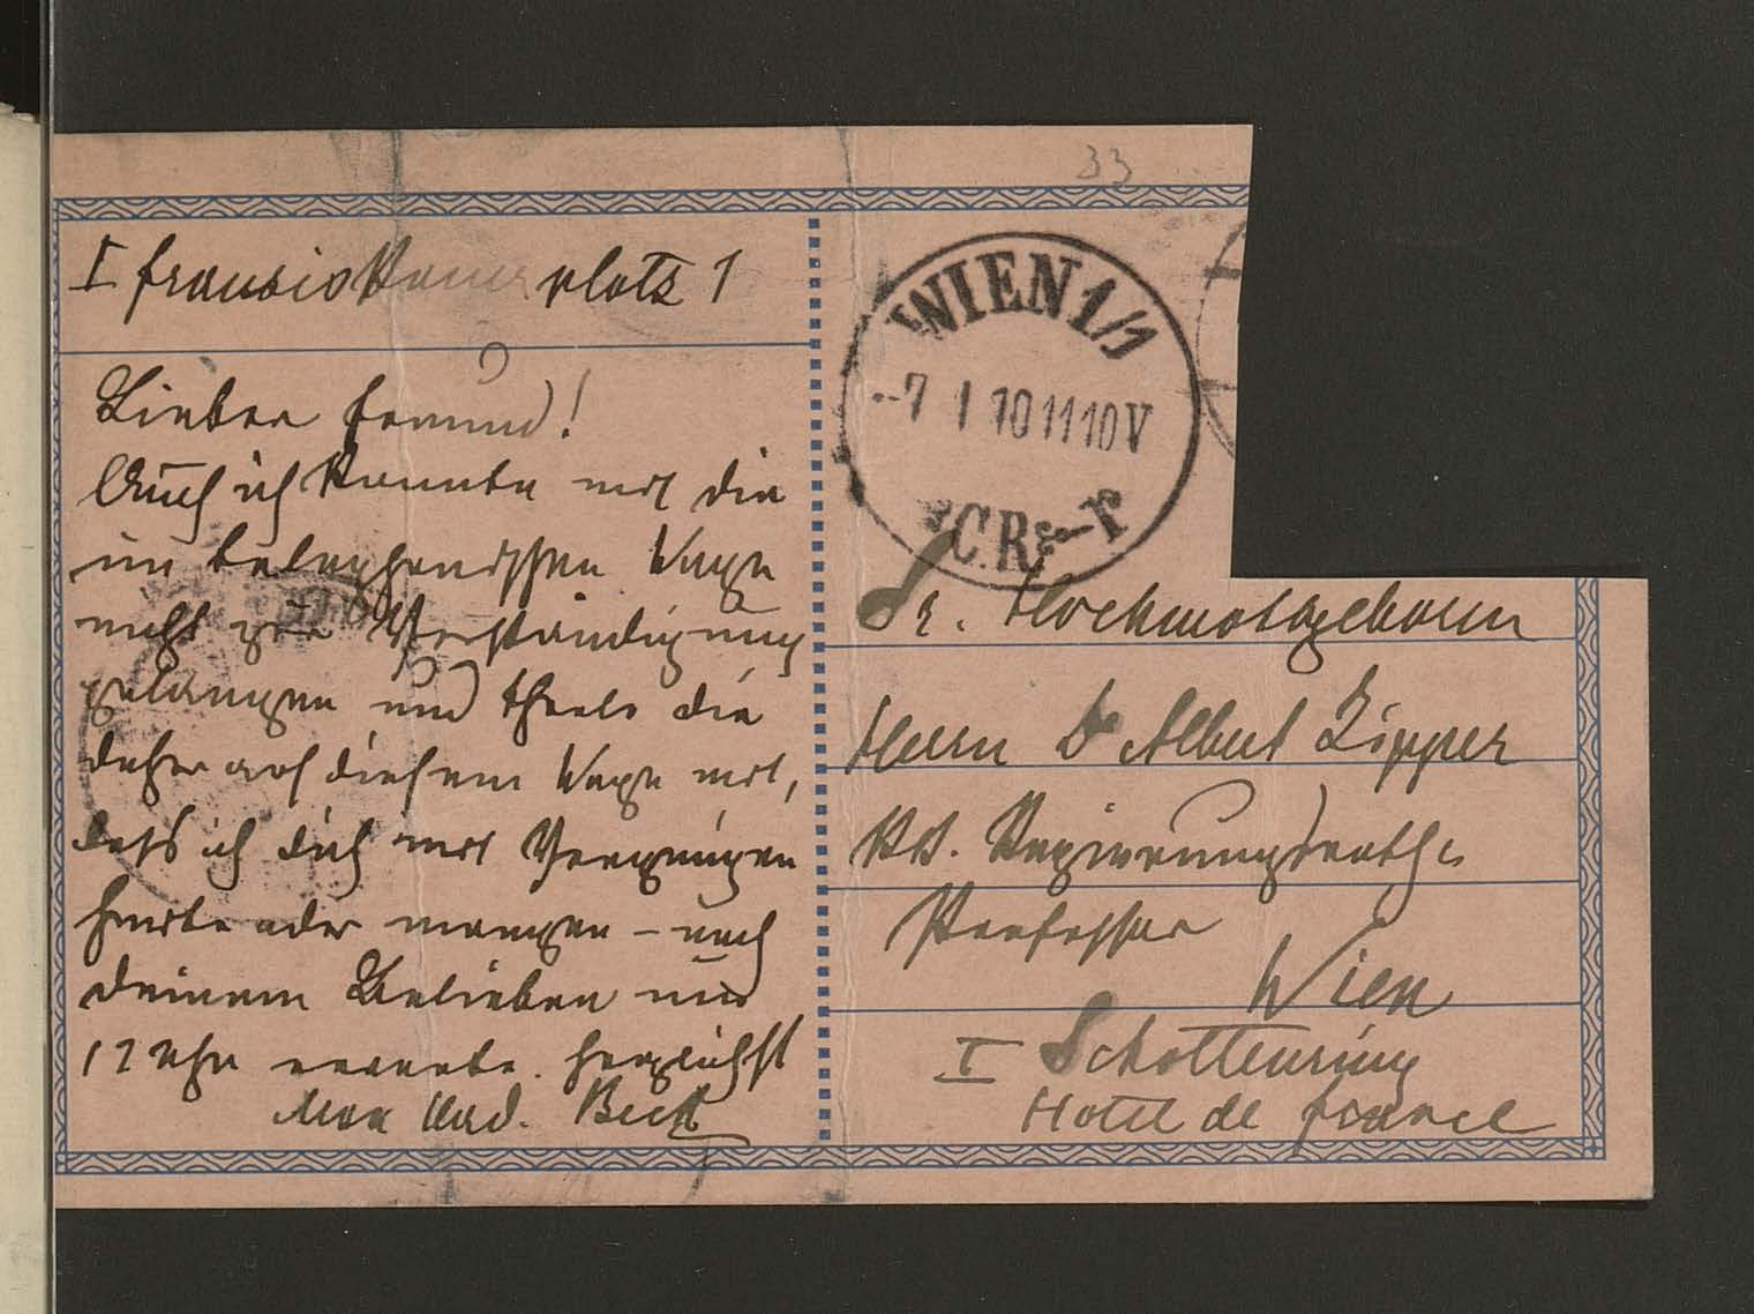 33
I Franziskanerplatz 1
Lieber Freund!
Auch ich konnte mit dir
im telephonischen Wege
nicht zur Verständigung
gelangen und theile dir
daher auf diesem Wege mit,
dass ich dich mit Vergnügen
heute oder morgen – nach
deinem Belieben um
12 Uhr erwarte. Herzlichst
Max Wlad. Beck
WIEN 1/1
-7 I 10 11 10 V
Sr. Hochwolgeboren
Herrn Dr Albert Zipper
kk. Regierungsrath u
Professor
Wien
I Schottenring
Hotel de France